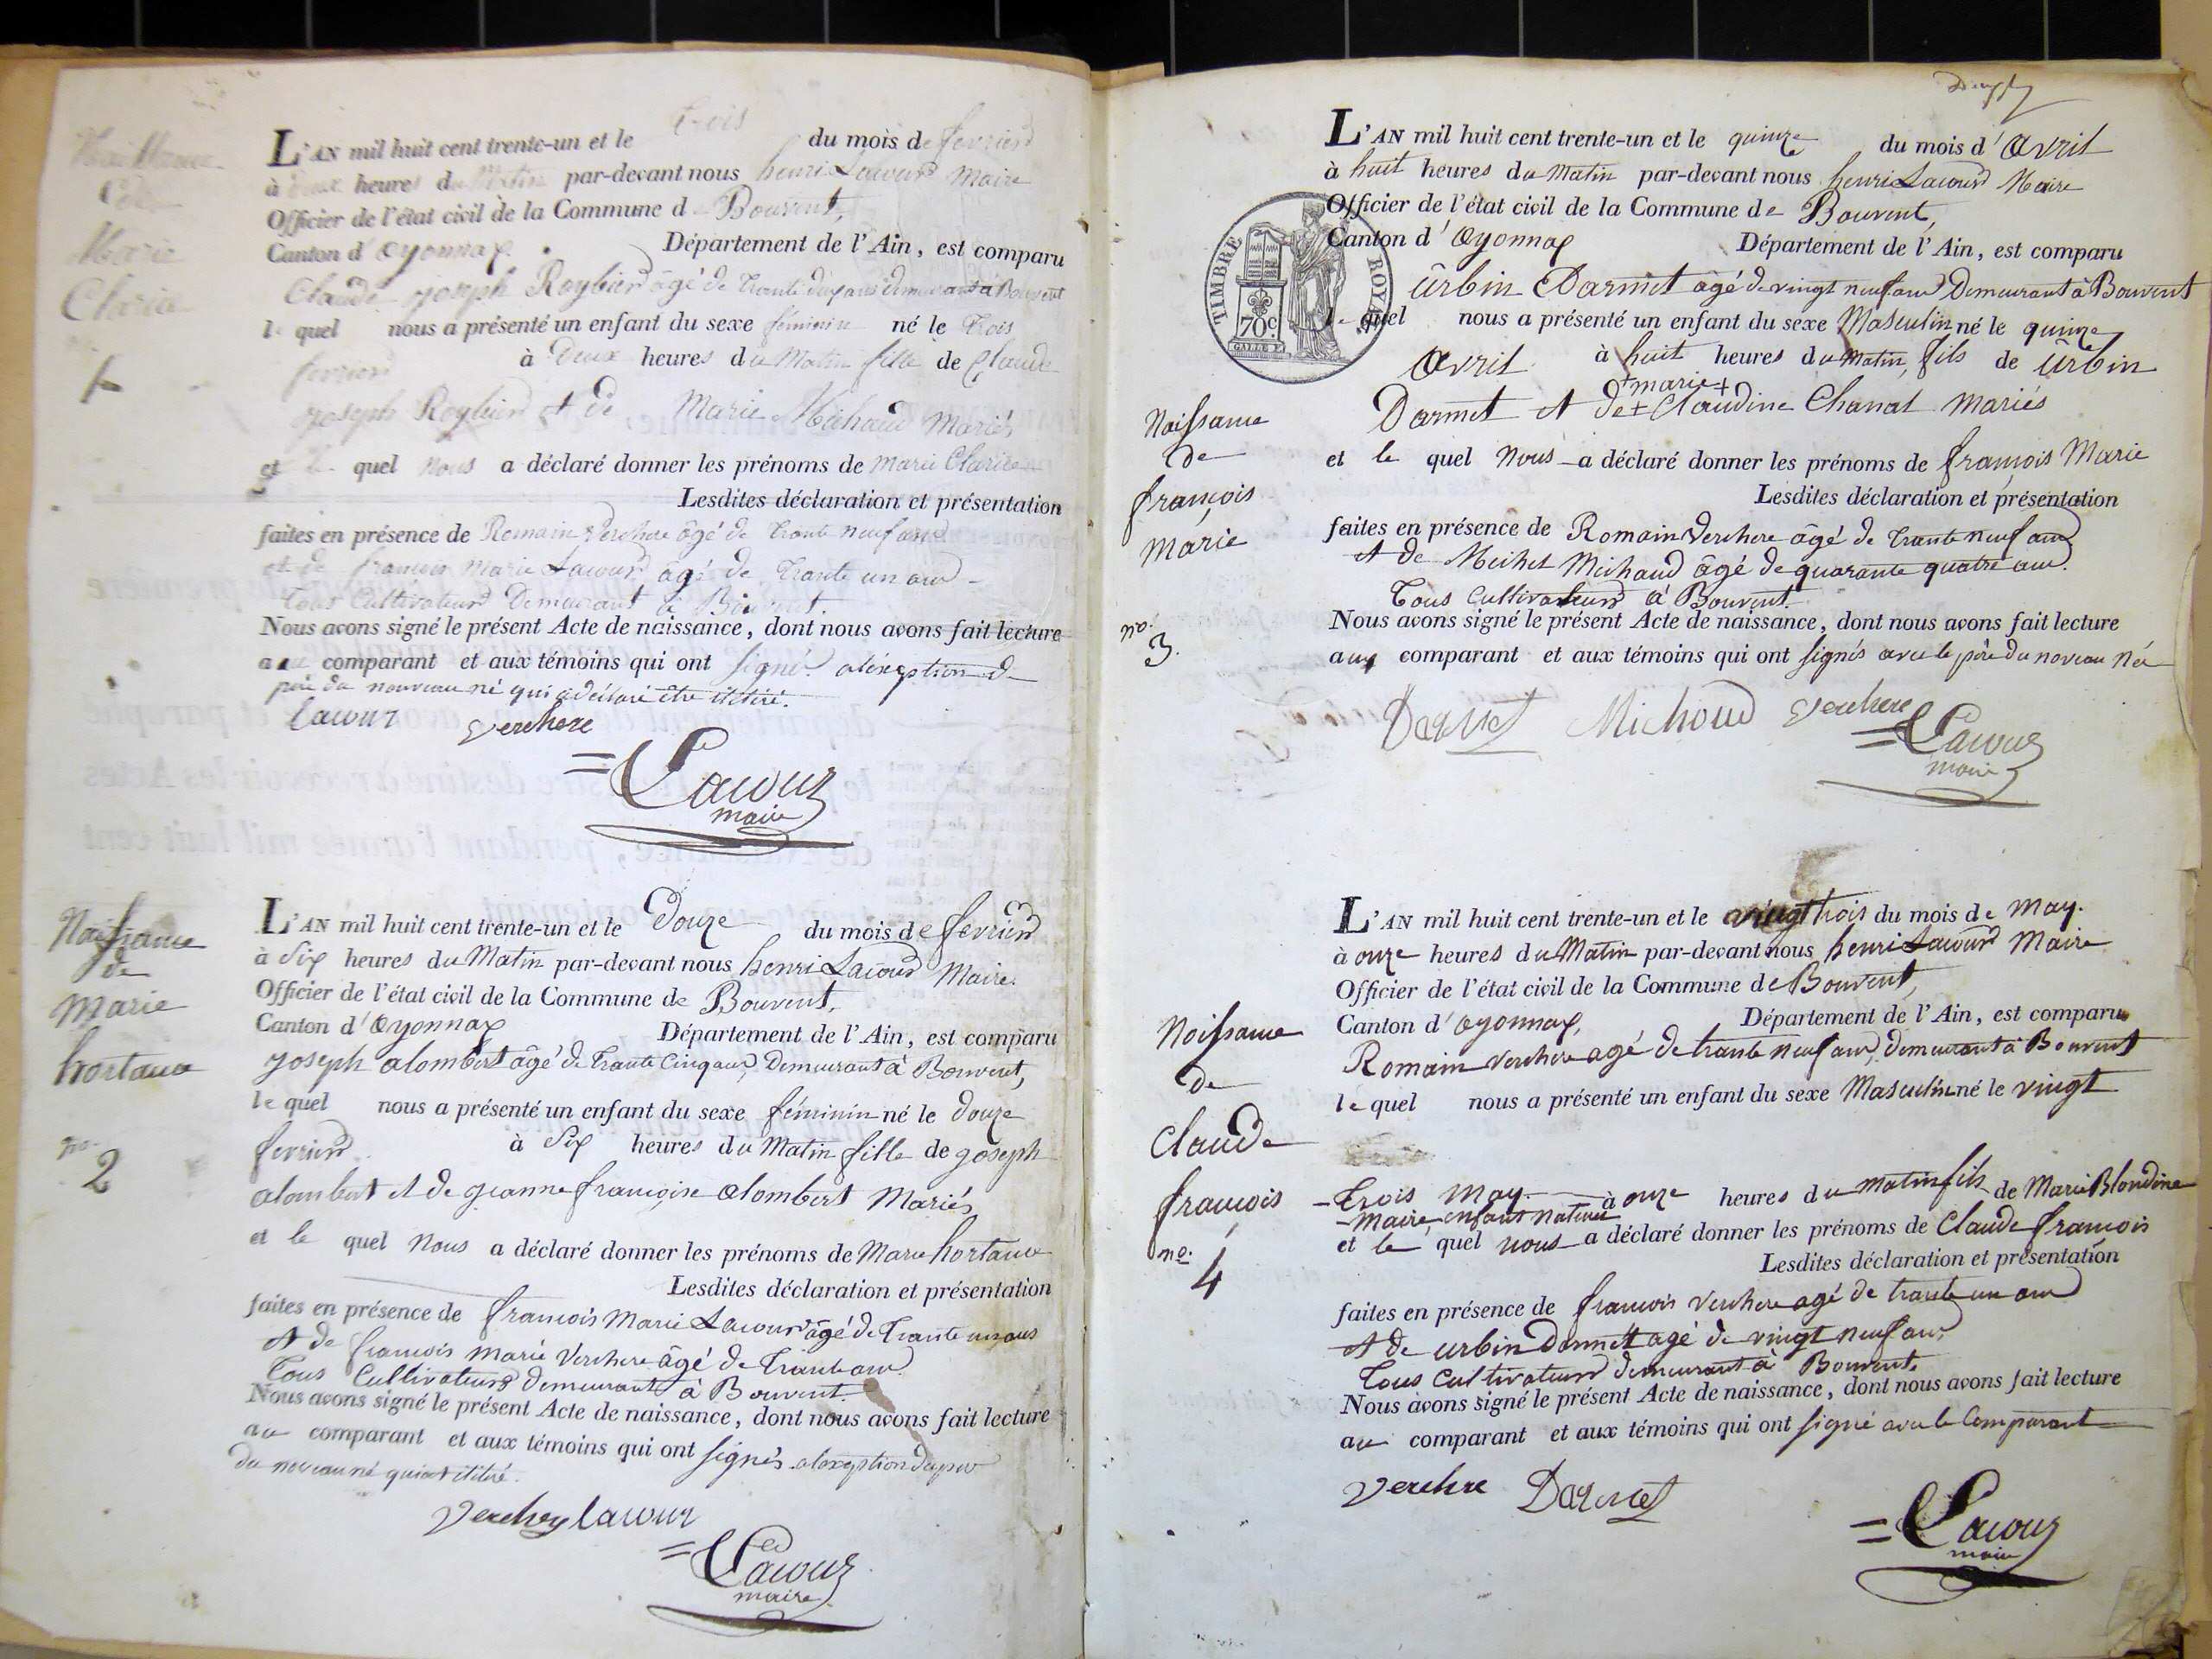 Naissance
de
Marie
Clarice
1
L'AN mil huit cent trente-un et le trois du mois de fevrier
à deux heures du Matin par-devant nous henri Lacour Maire
Officier de l'état civil de la Commune d Bouvent,
Canton d'oyonnax. Département de l'Ain, est comparu
Claude joseph Roybier âgé de trante ans demeurant à Bouvent
le quel nous a présenté un enfant du sexe féminin né le trois
fevrier à Deux heures du Matin fille de Claude
joseph Roybier et de Marie Michaud Mariés
et le quel nous a déclaré donner les prénoms de Marie Clarice
Lesdites déclaration et présentation
faites en présence de Romain Verchere âgé de trante neuf ans
et de françois Marie Lacour âgé de trante un ans
Tous Cultivateurs Demeurant à Bouvent.
Nous avons signé le présent Acte de naissance, dont nous avons fait lecture
au comparant et aux témoins qui ont signé aléxeption d
père du nouveau né qui a déclaré être ilitiré.
Lacour verchere
Lacour
maire
Naissance
de
Marie
hortance
no.
2
L'AN mil huit cent trente-un et le Douze du mois de fevrier
à Six heures du Matin par-devant nous henri Lacour Maire.
Officier de l'état civil de la Commune de Bouvent,
Canton d'oyonnax Département de l'Ain, est comparu
joseph alombert âgé de trante Cinq ans, Demeurant à Bouvent,
le quel nous a présenté un enfant du sexe féminin né le Douze
fevrier à Six heures du Matin fille de joseph
alombert et de jeanne françoise alombert Mariés
et le quel Nous a déclaré donner les prénoms de Marie hortance
Lesdites déclaration et présentation
faites en présence de françois Marie Lacour âgé de trante un ans
et de françois marie Verchere âgé de trante ans
Tous Cultivateurs demeurant à Bouvent
Nous avons signé le présent Acte de naissance, dont nous avons fait lecture
au comparant et aux témoins qui ont signés aléxeption du père
du nouveau né qui est ilitiré.
verchere lacour
Lacour
maire
TIMBRE ROYAL
70c
L'AN mil huit cent trente-un et le quinze du mois d'avril
à huit heures du Matin par-devant nous henri Lacour Maire
Officier de l'état civil de la Commune de Bouvent,
Canton d'oyonnax Département de l'Ain, est comparu
urbin Darmet âgé de vingt neuf ans Demeurant à Bouvent
le quel nous a présenté un enfant du sexe Masculin né le quinze
avril à huit heures du Matin, fils de urbin
+marie+
Darmet et de + Claudine Chanal Mariés
et le quel Nous a déclaré donner les prénoms de françois Marie
Lesdites déclaration et présentation
faites en présence de Romain Verchere âgé de trante neuf ans
et de Michel Michaud âgé de quarante quatre ans.
Tous Cultivateurs à Bouvent.
Nous avons signé le présent Acte de naissance, dont nous avons fait lecture
aux comparant et aux témoins qui ont signés avec le père du noveau né
Darmet Michoud verchere
Lacour
maire
Naissance
de
françois
marie
no.
3.
L'AN mil huit cent trente-un et le vingt trois du mois de may.
à onze heures du Matin par-devant nous henri Lacour Maire
Officier de l'état civil de la Commune de Bouvent,
Canton d'oyonnax, Département de l'Ain, est comparu
Romain Verchere agé de trante neuf ans, demeurant à Bouvent
le quel nous a présenté un enfant du sexe Masculin né le vingt
Trois May. à onze heures du matin fils de Marie Blondine
Maire, enfant naturel
et le quel nous a déclaré donner les prénoms de Claude françois
Lesdites déclaration et présentation
faites en présence de françois Verchere agé de trante un ans
et de urbin Darmet agé de vingt neuf ans,
Tous Cultivateurs demeurant à Bouvent.
Nous avons signé le présent Acte de naissance, dont nous avons fait lecture
au comparant et aux témoins qui ont signé avec le Comparant
verchere Darmet
Lacour
maire
Naissance
de
Claude
françois
no.
4